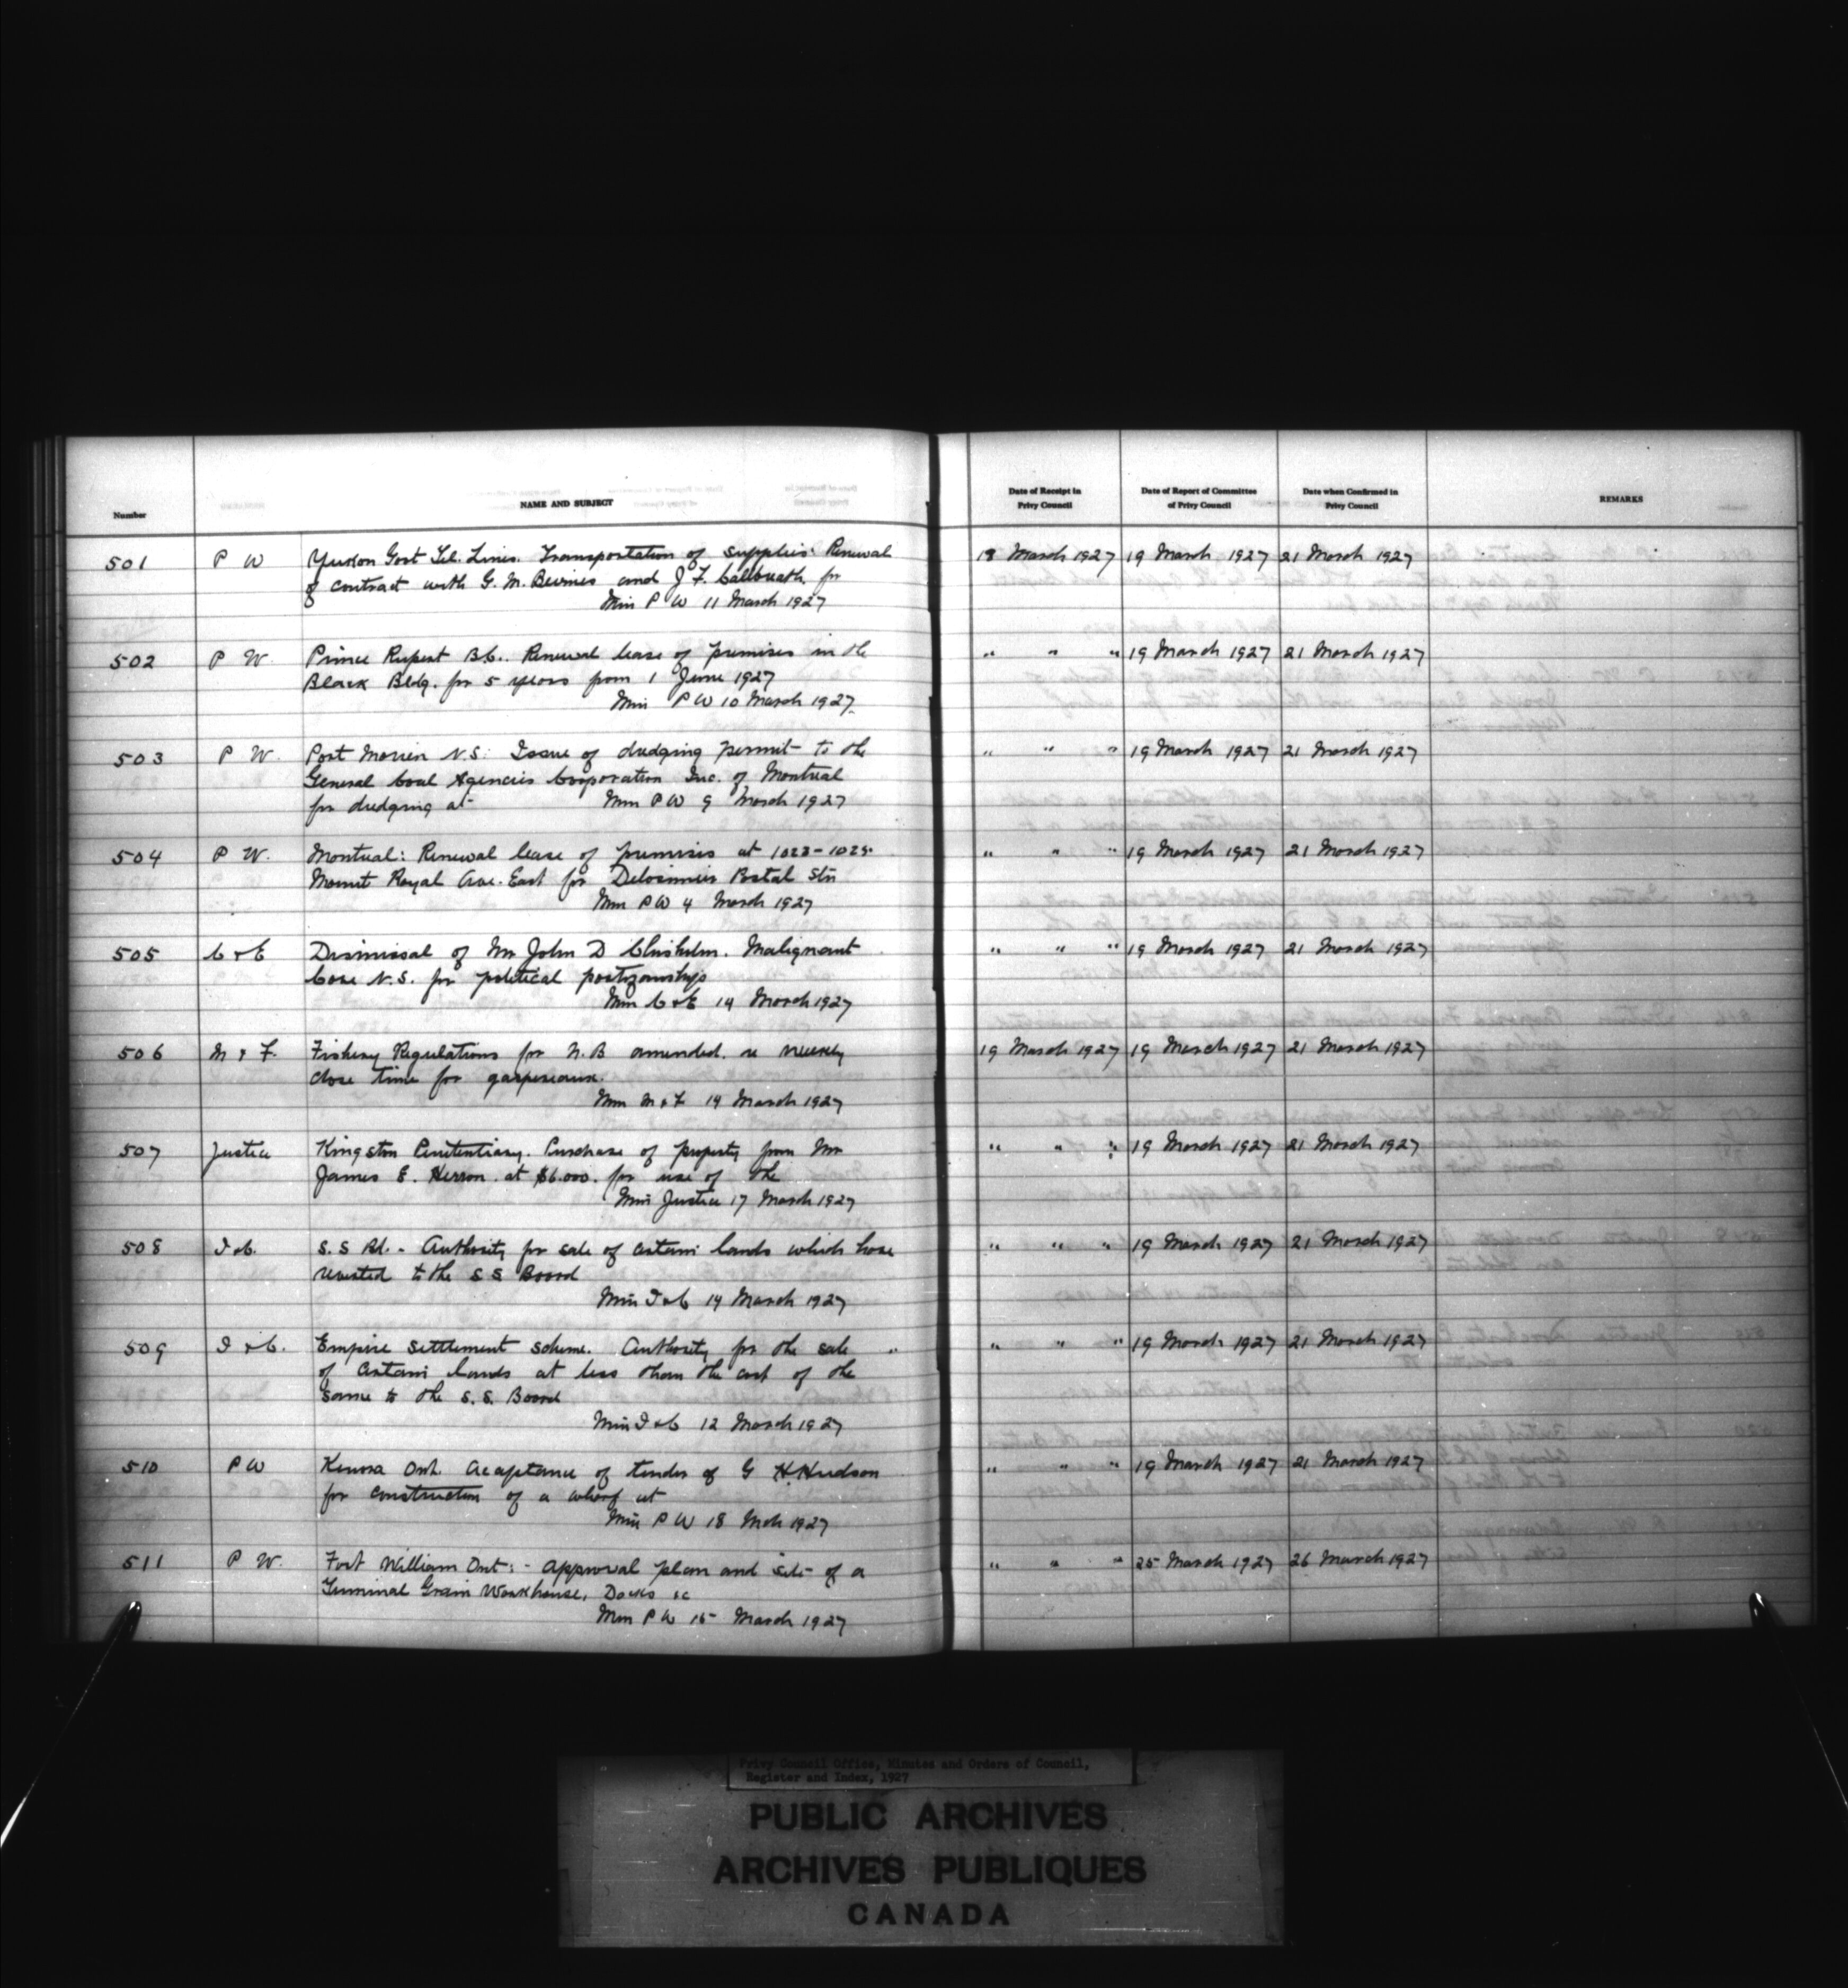 Number
NAME AND SUBJECT
Date of Receipt in Privy Council
Date of Report of Committee of Privy Council
Date when Confirmed in Privy Council
REMARKS
501 P W Yukon Govt Tel. Lines. Transportation of supplies. Renewal 18 March 1927 19 March 1927 21 March 1927
of contract with G. M. and J. F. Callbreath for
Min P W 11 March 1927
502 P W. Prince Rupert B.C. Renewal lease of premises in the " " " 19 March 1927 21 March 1927
Black Bldg. for 5 years from 1 June 1927
Min P W 10 March 1927.
503 P W. Port Morien N.S: Issue of dredging permit to the " " " 19 March 1927 21 March 1927
General Coal Agencies Corporation Inc. of Montreal
for dredging at Min P W 9 March 1927
504 P W. Montreal: Renewal lease of premises at 1023-1025 " " " 19 March 1927 21 March 1927
Mount Royal Ave. East for Delorimier Postal Stn
Min P W 4 March 1927
505 C & E Dismissal of Mr John D Chisholm. Malignant " " " 19 March 1927 21 March 1927
Cove N.S. for political partizanship
Min C & E 14 March 1927
506 M & F. Fishery Regulations for N.B amended. re weekly 19 March 1927 19 March 1927 21 March 1927
close time for gaspereaux.
Min M & F 14 March 1927
507 Justice Kingston Penitentiary. Purchase of property from Mr " " " 19 March 1927 21 March 1927
James E. Herron. at $6.000. for use of the
Min Justice 17 March 1927
508 I & C. S. S Bd. - Authority for sale of certain lands which have " " " 19 March 1927 21 March 1927
reverted to the S S Board
Min I & C 14 March 1927
509 I & C. Empire Settlement scheme. Authority for the sale " " " 19 March 1927 21 March 1927
of certain lands at less than the cost of the
same to the S. S. Board
Min I & C 12 March 1927
510 P W Kenora Ont. Acceptance of tender of G H. Hudson " " " 19 March 1927 21 March 1927
for construction of a wharf at
Min P W 18 Mch 1927
511 P W. Fort William Ont: - Approval plan and site of a " " " 25 March 1927 26 March 1927
Terminal Grain Workhouse, Docks &c
Min P W 15 March 1927
Privy Council Office, Minutes and Orders of Council,
Register and Index, 1927
PUBLIC ARCHIVES
ARCHIVES PUBLIQUES
CANADA